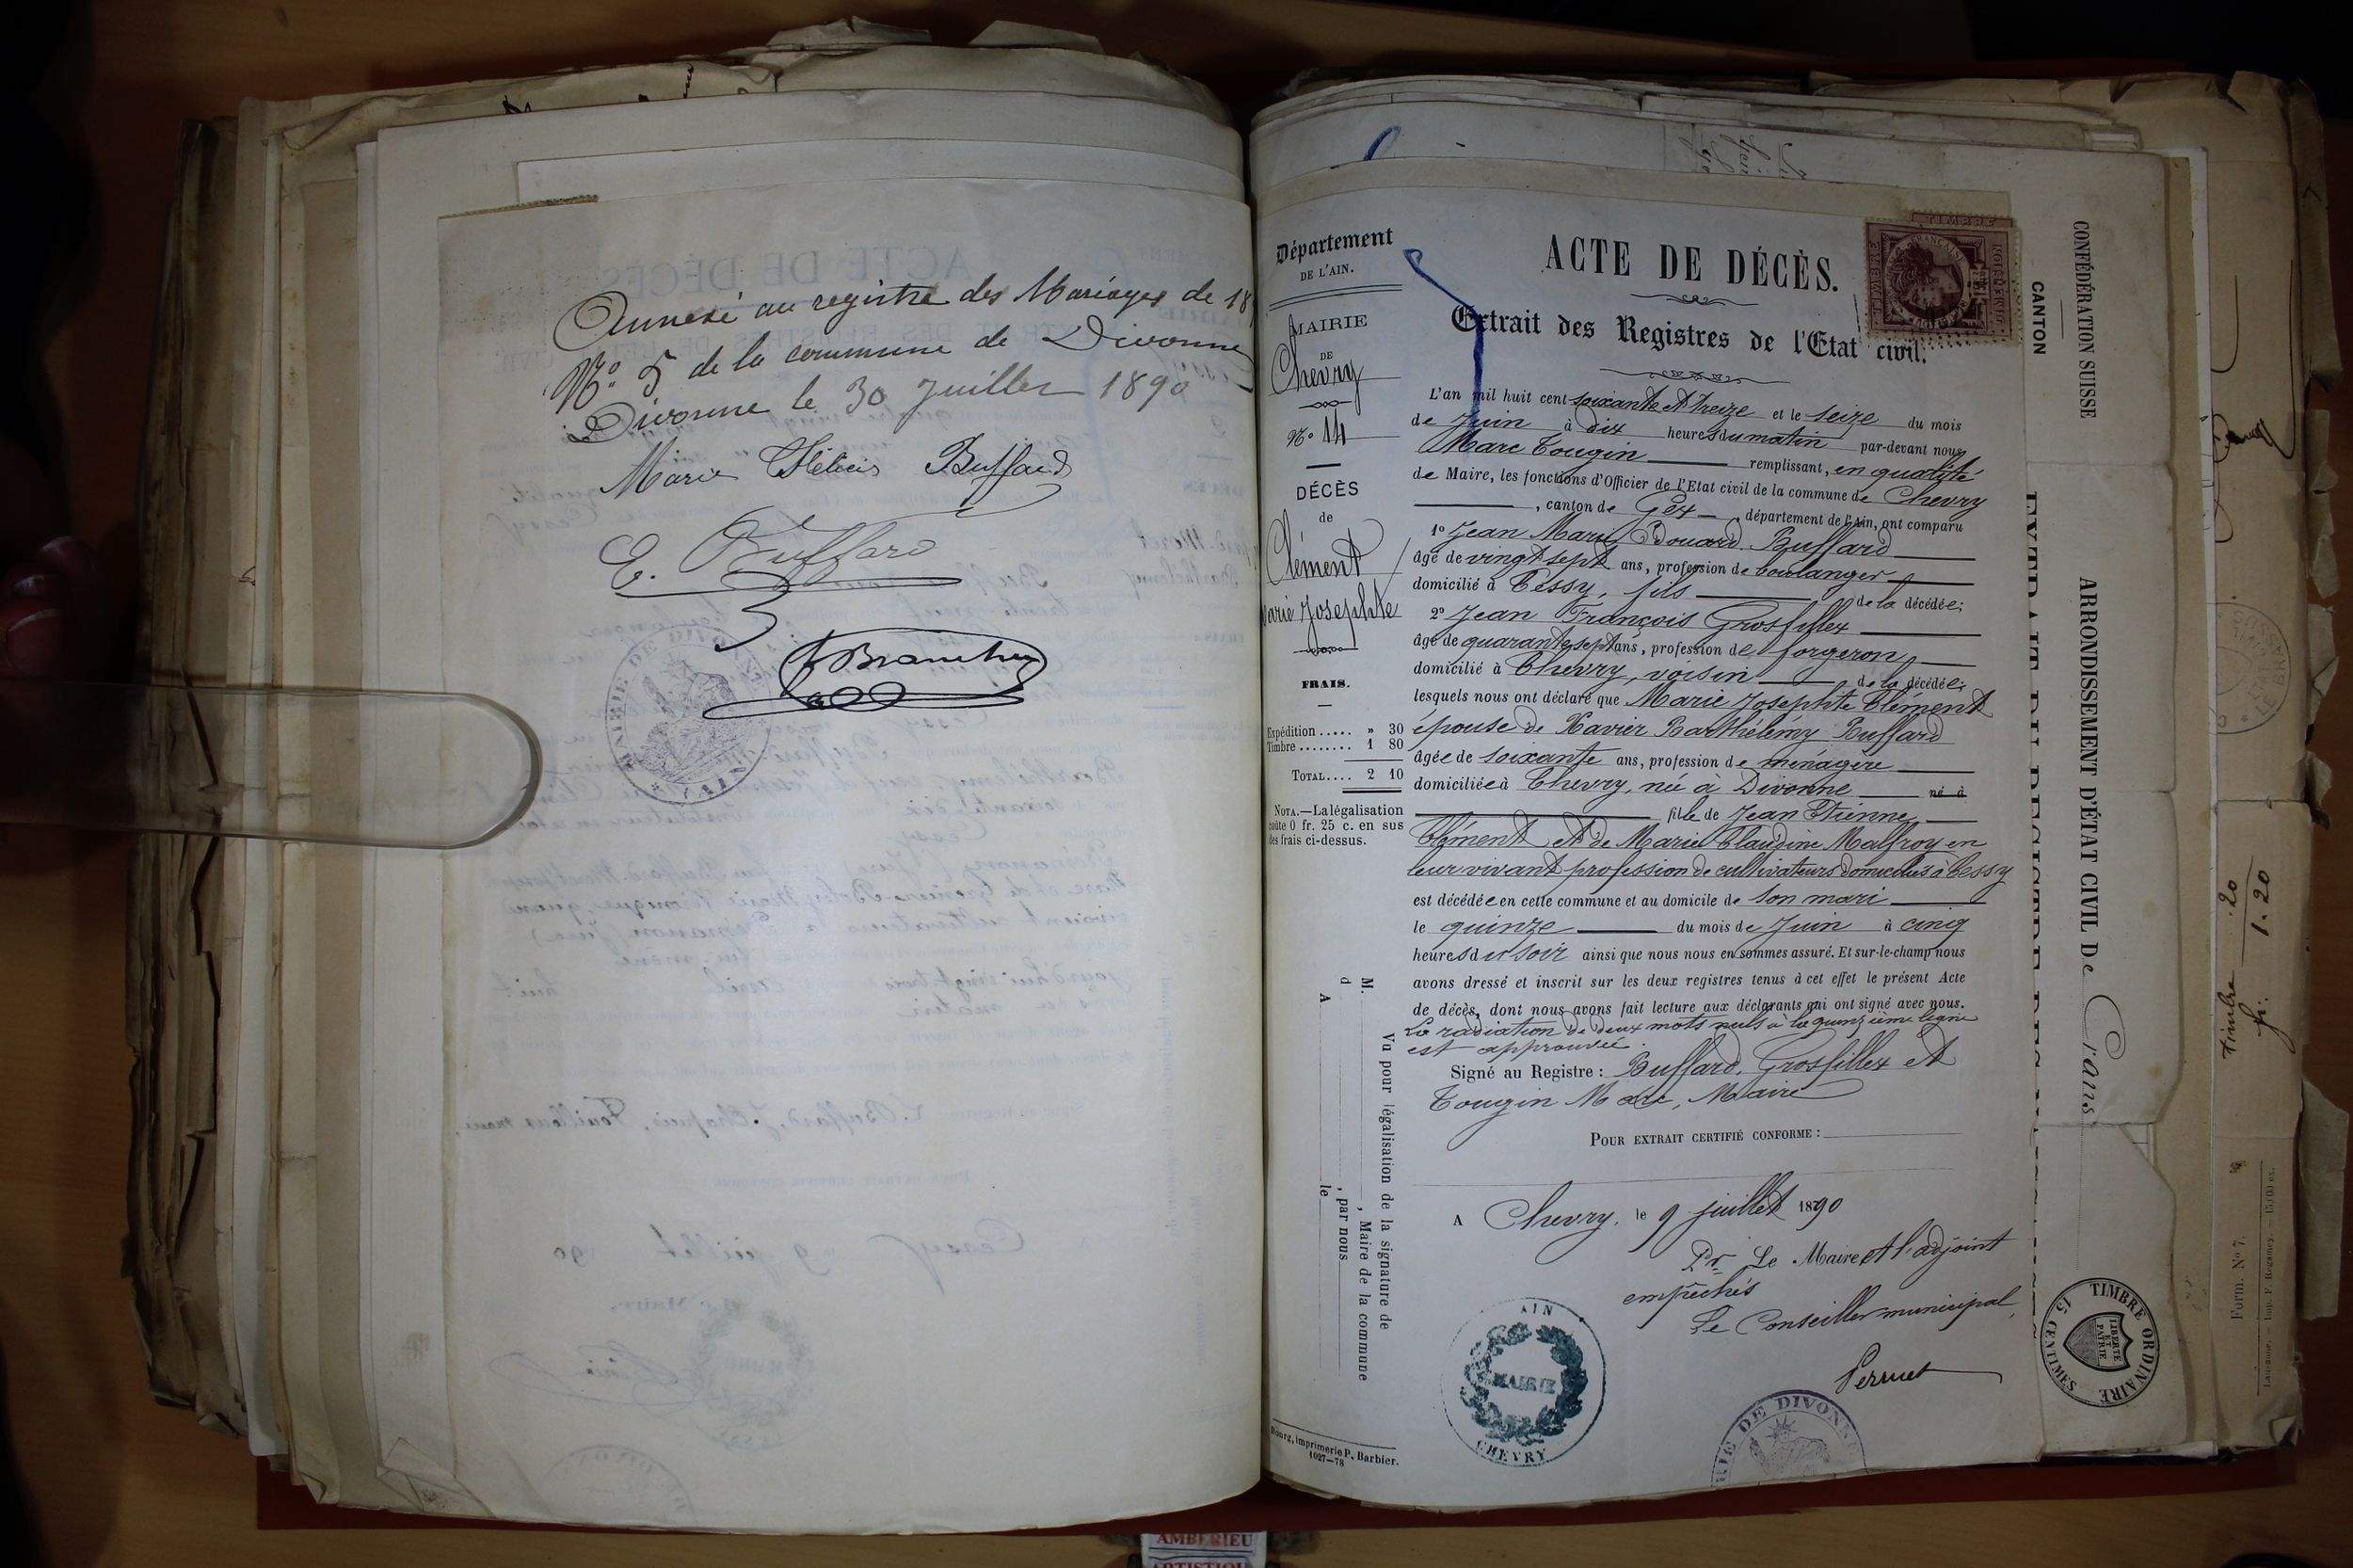 Annexé au registre des Mariages de 18
No 5 de la commune de Divonne
Divonne le 30 Juillet 1890
Marie Buffard
E. Buffard
MAIRIE DE
AIN
Département
DE L'AIN.
MAIRIE
DE
Chevry
No 14
DÉCÈS
de
Clément
Marie Josephte
FRAIS.
Expédition ..... » 30
Timbre ........ 1 80
TOTAL.... 2 10
NOTA.—La légalisation
coûte 0 fr. 25 c. en sus
des frais ci-dessus.
ACTE DE DÉCÈS.
Extrait des Registres de l'Etat civil.
L'an mil huit cent soixante et treize et le seize du mois
de Juin à dix heures du matin par-devant nous
Marc Tougin remplissant, en qualité
de Maire, les fonctions d'Officier de l'Etat civil de la commune de Chevry
, canton de Gex, département de l'Ain, ont comparu
1o Jean Marie Edouard Buffard
âgé de vingt sept ans, profession de boulanger
domicilié à Cessy, fils de la décédée;
2o Jean François Grosfillex
âgé de quarante sept ans, profession de forgeron
domicilié à Chevry, voisin de la décédée;
lesquels nous ont déclaré que Marie Josephte Clément
épouse de Xavier Barthélémy Buffard
âgée de soixante ans, profession de ménagère
domiciliée à Chevry, née à Divonne né à
fille de Jean Etienne
Clément et de Marie Claudine Malfroy en
leur vivant profession de cultivateurs domiciliés à Cessy
est décédée en cette commune et au domicile de son mari
le quinze du mois de Juin à cinq
heures du soir ainsi que nous nous en sommes assuré. Et sur-le-champ nous
avons dressé et inscrit sur les deux registres tenus à cet effet le présent Acte
de décès, dont nous avons fait lecture aux déclarants qui ont signé avec nous.
La radiation de deux mots nuls à la quinzième ligne
est approuvée.
Signé au Registre : Buffard, Grosfillex et
Tougin Marc, Maire
POUR EXTRAIT CERTIFIÉ CONFORME :
A Chevry, le 9 juillet 1890
Pr Le Maire et l'adjoint
empêchés
Le Conseiller municipal,
Perruet
AIN
MAIRIE
CHEVRY
MAIRIE DE DIVONNE
Vu pour légalisation de la signature de
M. , Maire de la commune
d , par nous
A le
Bourg, imprimerie P. Barbier.
1027—78
CONFÉDÉRATION SUISSE
CANTON
ARRONDISSEMENT D'ÉTAT CIVIL De Crans
TIMBRE ORDINAIRE
15 CENTIMES
LIBERTÉ
ET
PATRIE
Timbre .20
fr. 1.20
Form. No 7.
AMBERIEU